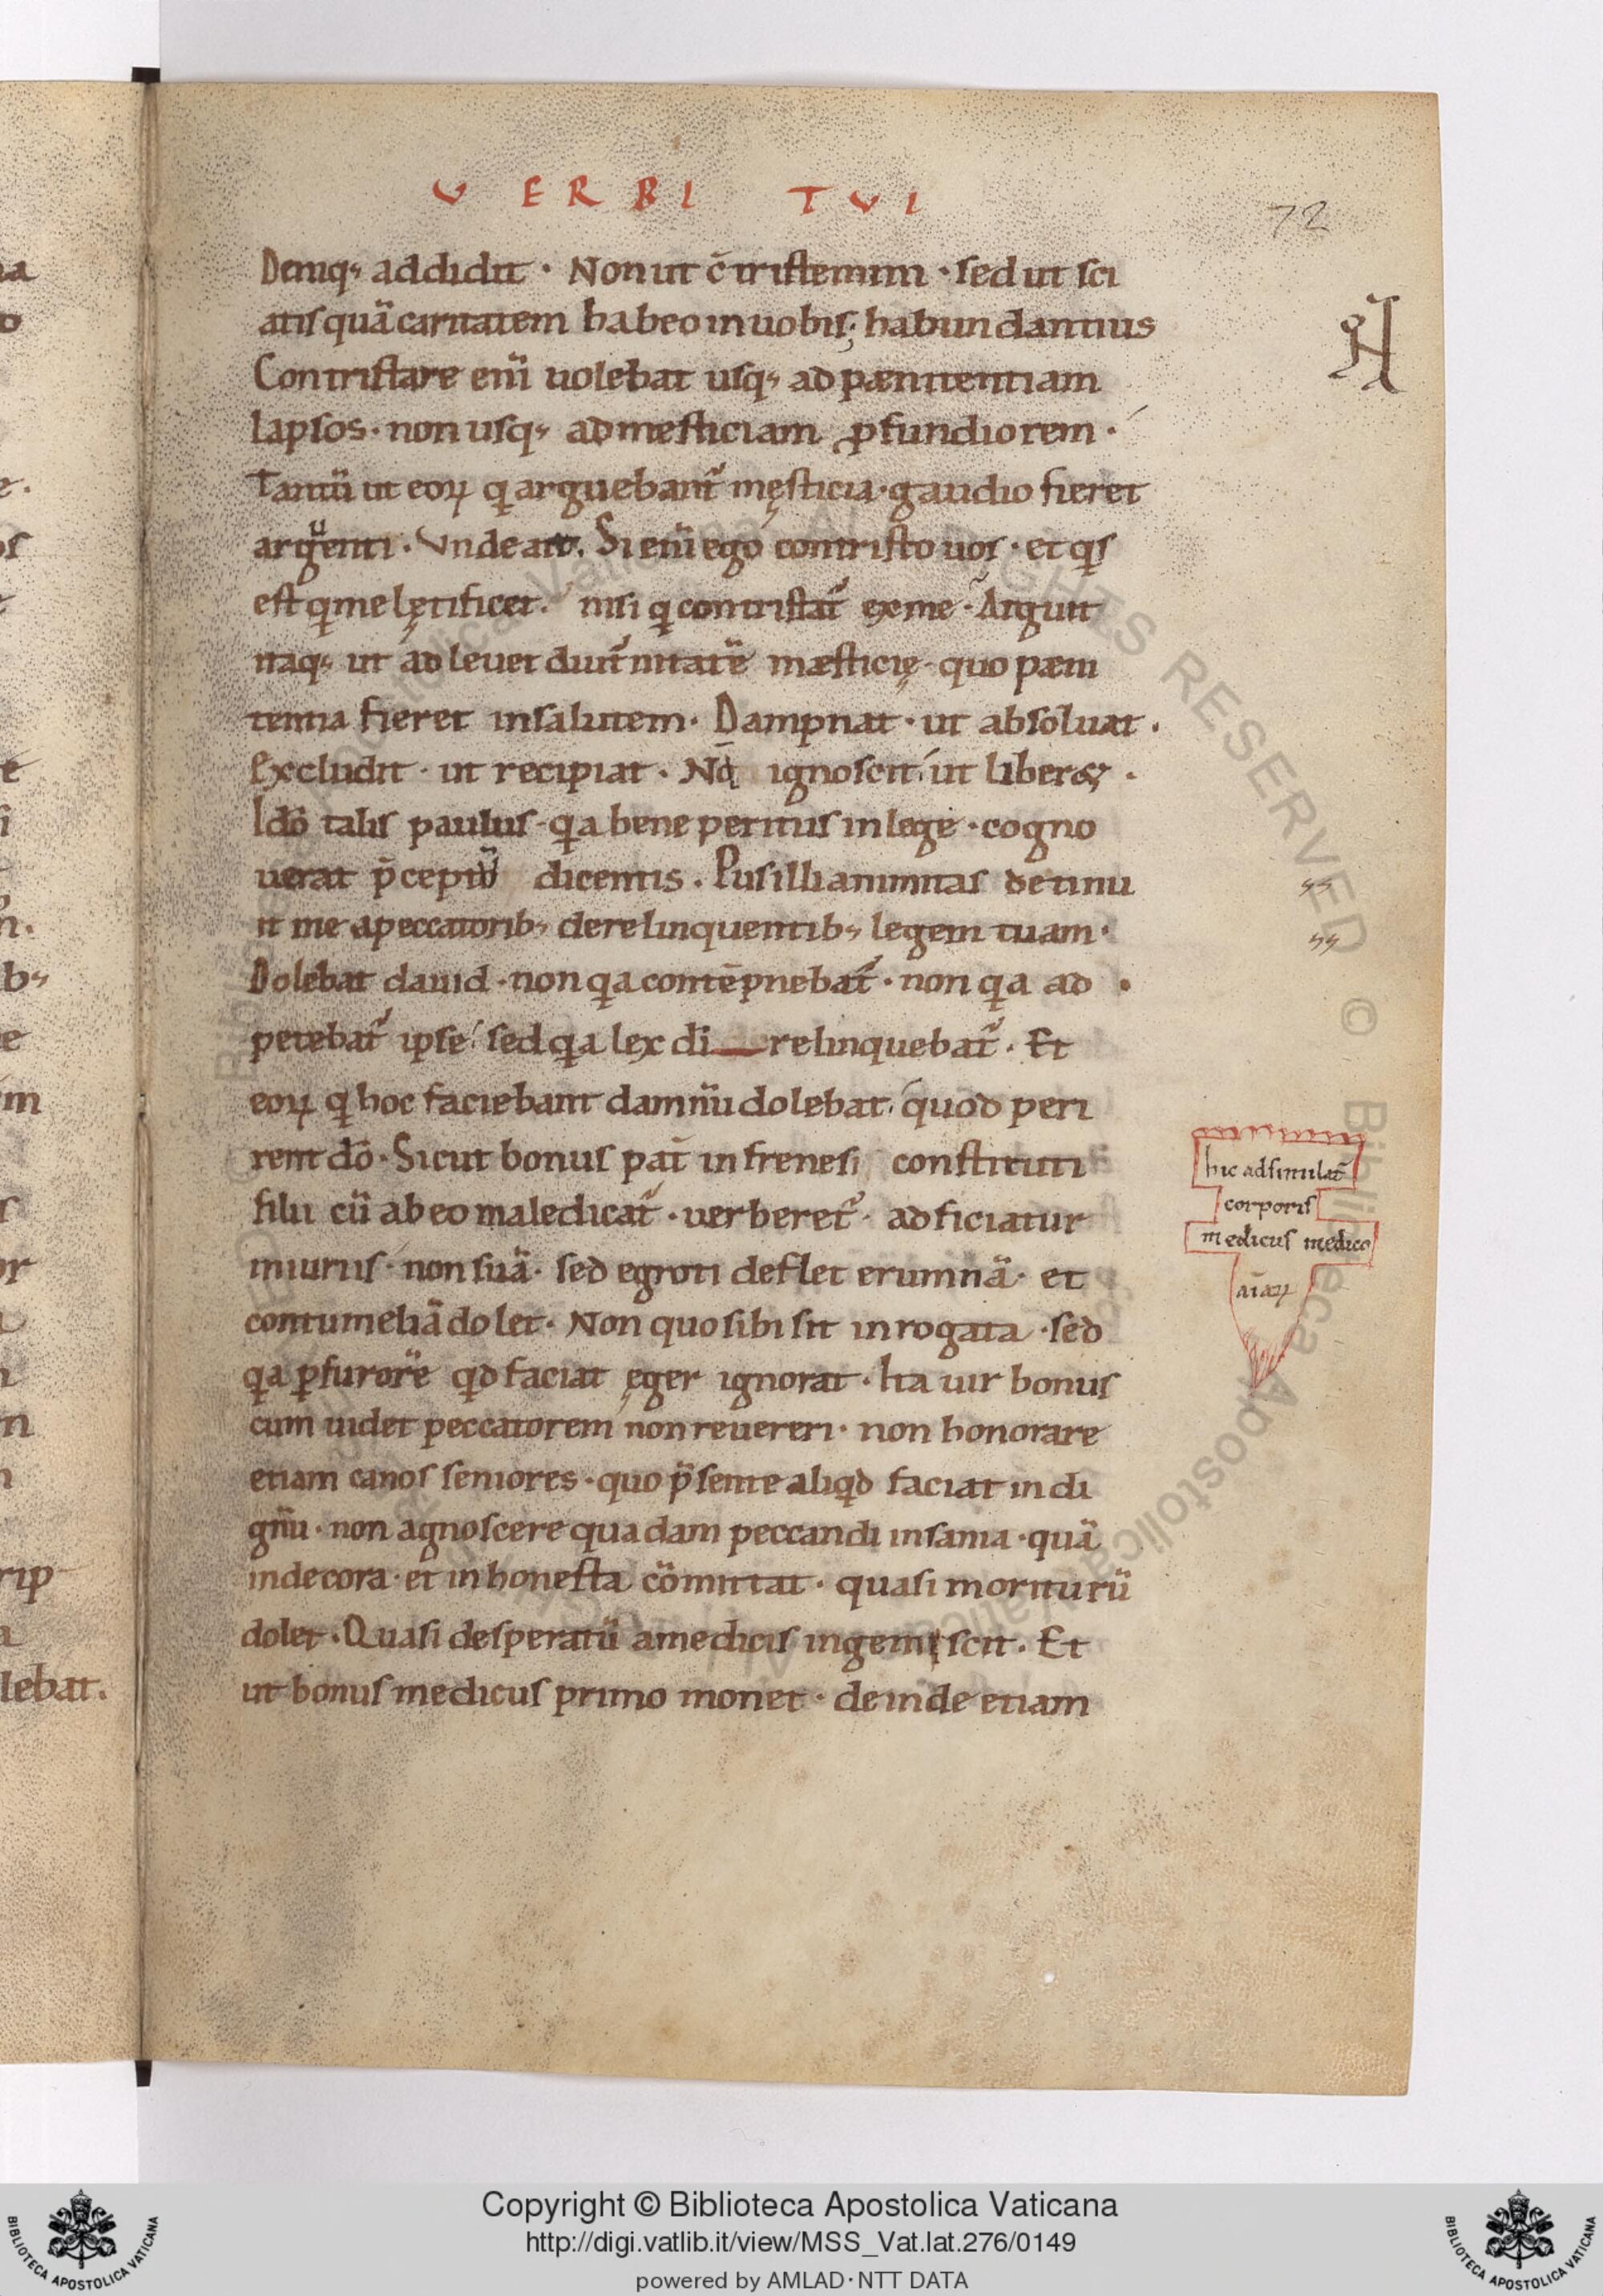 VERBI TVI
72
Deniq; addidit · Non ut c̄tristemini · sed ut sci
atis quā caritatem habeo in uobis; habundantius
Contristare enī uolebat usq; ad pænitentiam
lapsos · non usq; ad mesticiam ꝓfundiorem ·
Tantū ut eoꝝ q arguebant᷑ męsticia · gaudio fieret
arguenti · Vnde ait. Si enī ego contristo uos · et qis
est q me lętificet. nisi q contristat᷑ ex me · Arguit
itaq; ut adleuet diut᷑nitatē mæsticię · quo pæni
tentia fieret in salutem · Dampnat · ut absoluat ·
Excludit · ut recipiat · Nō ignoscit · ut liber& ·
Idō talis paulus · qa bene peritus in lege · cogno
uerat p̄ceptū dicentis . Pusillianimitas detinu
it me a peccatorib; derelinquentib; legem tuam ·
Dolebat dauid · non qa contēpnebat᷑ · non qa ad
petebat᷑ ipse · sed qa lex dī relinquebat᷑ · Et
eoꝝ q hoc faciebant damnū dolebat · quod peri
rent dō · Sicut bonus pat̄ in frenesi constituti
filii cū ab eo maledicat᷑ · uerberet᷑ · adficiatur
iniuriis · non suā · sed egroti deflet erumnā · et
contumeliā dolet · Non quo sibi sit inrogata · sed
qa p̱ furorē qd faciat ęger ignorat · Ita uir bonus
cum uidet peccatorem non reuereri · non honorare
etiam canos seniores · quo p̄sente aliqd faciat indi
gnū · non agnoscere quadam peccandi insania · quā
indecora · et inhonesta cōmittat · quasi moriturū
dolet · Quasi desperatū a medicis ingemiscit . Et
ut bonus medicus primo monet · deinde etiam
hic adsimulat᷑
corporis
medicus medico
aīaꝝ
lebat.
Copyright © Biblioteca Apostolica Vaticana
http://digi.vatlib.it/view/MSS_Vat.lat.276/0149
powered by AMLAD·NTT DATA
BIBLIOTECA APOSTOLICA VATICANA
BIBLIOTECA APOSTOLICA VATICANA